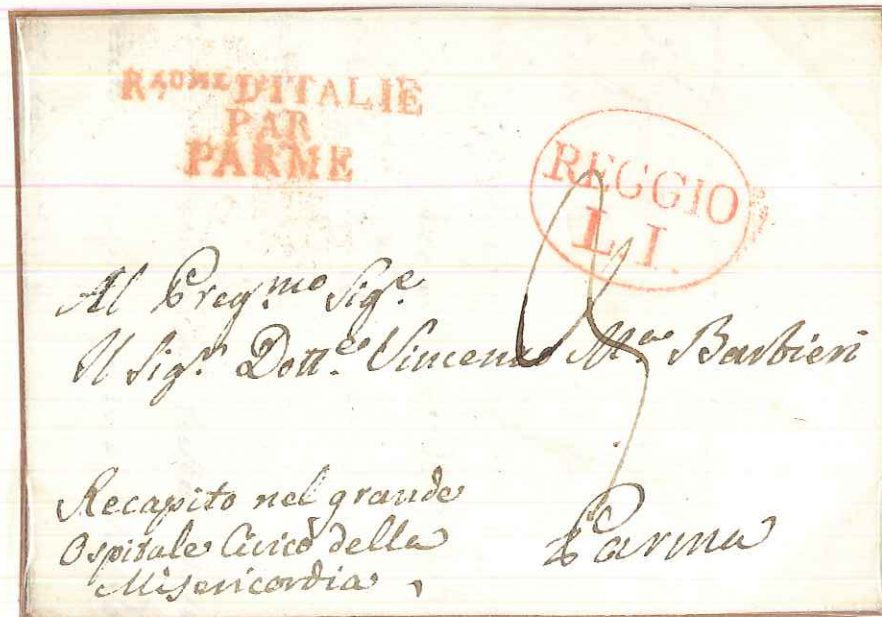 R.AUME D'ITALIE
PAR
PARME
REGGIO
L. I.
Al Preg.mo Sig.e
Il Sig.r Dott.e Vincenzo M.a Barbieri
Recapito nel grande
Ospitale Civico della
Misericordia,
Parma